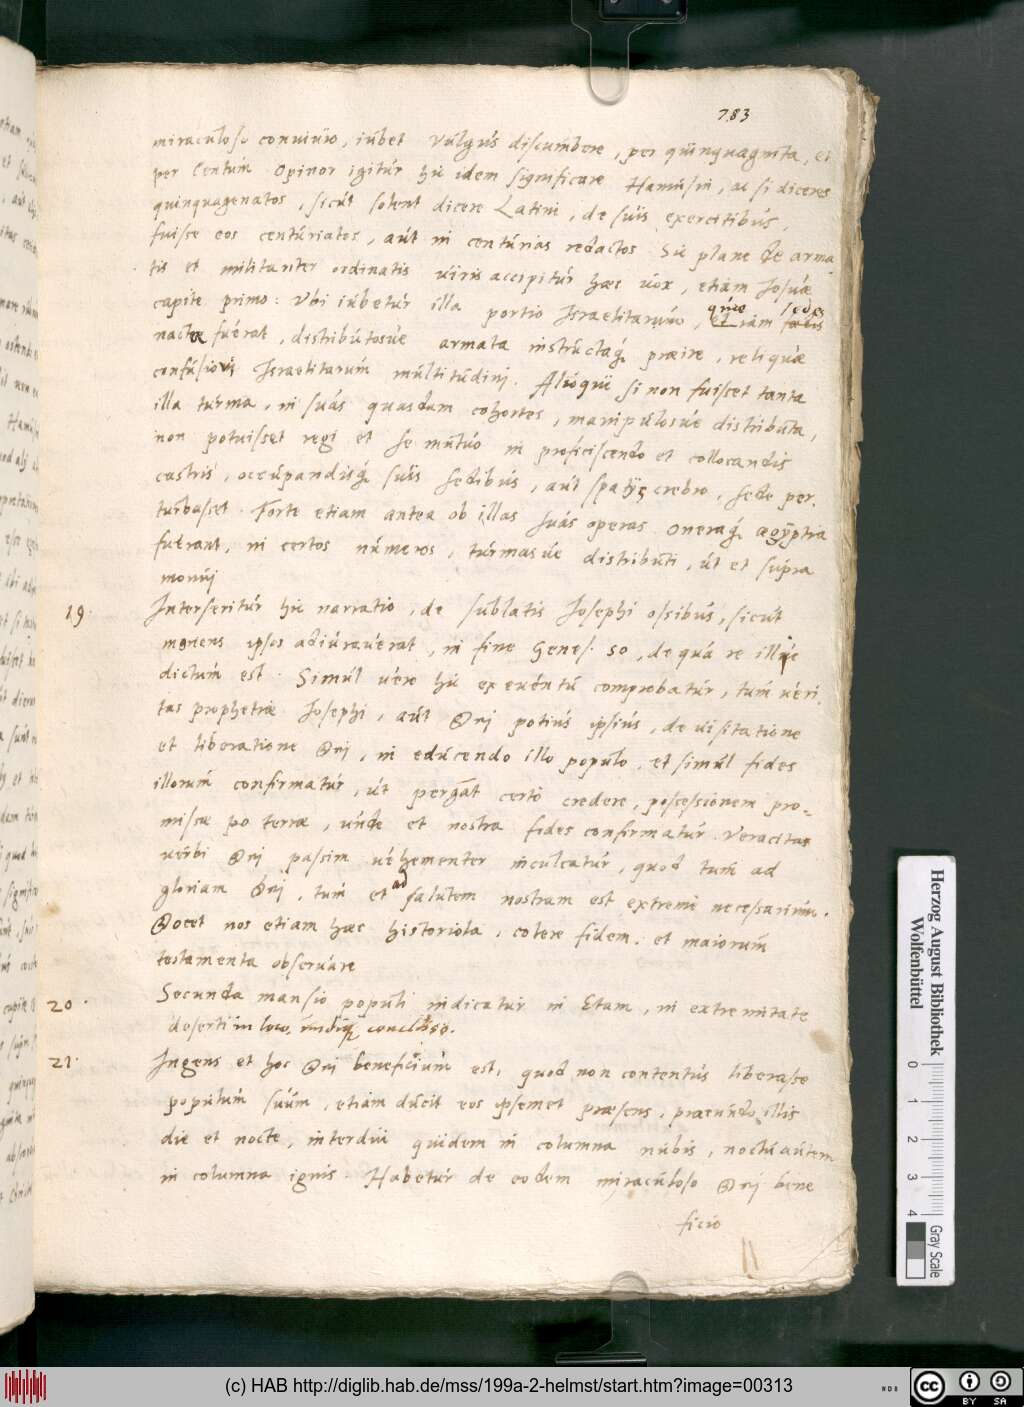 783
miraculoso conuiuio, iubet vulgus discumbere, per quinquaginta, et
per Centum. Opinor igitur hic idem significare Hamusin, ac si diceres
quinquagenatos, sicut solent dicere Latini, de suis exercitibus,
fuisse eos centuriatos, aut in centurias redactos. Sic plane de arma
tis et militariter ordinatis uiris accipitur haec uox, etiam Josuae
capite primo: Vbi iubetur illa portio Israelitarum, quae iam sedes
nacta fuerat, distributosue armata instructaq́, praeire, reliquae
confusioni Israelitarum multitudini. Alioqui si non fuisset tanta
illa turma, in suas quasdam cohortes, manipulosue distributa,
non potuisset regi et se mutuo in proficiscendo et collocandis
castris, occupandisq́ suis sedibus, aut spatijs crebro, sede per,
turbasset. Forte etiam antea ob illas suas operas oneraq́ aegyptia
fuerant, in certos numeros, turmasue distributi, ut et supra
monui
19. Interseritur hic narratio, de sublatis Josephi ossibus, sicut
moriens ipsos adiurauerat, in fine Genes. 50, de qua re illic
dictum est. Simul uero hic ex euentu comprobatur, tum ueri,
tas prophetiae Josephi, aut Dei potius ipsius, de uisitatione
et liberatione Dei, in educendo illo populo, et simul fides
illorum confirmatur, ut pergat certo credere, possessionem pro-
missae terrae, unde et nostra fides confirmatur. Veracitas
uerbi Dei passim uehementer inculcatur, quod tum ad
gloriam Dei, tum et ad salutem nostram est extreme necessarium.
Docet nos etiam haec historiola, colere fidem, et maiorum
testamenta obseruare
20. Secunda mansio populi indicatur in Etam, in extremitate
deserti in loco, undiq conclusso.
21. Ingens et hoc Dei beneficium est, quod non contentus liberasse
populum suum, etiam ducit eos ipsemet praesens, praeeundo illis
die et nocte, interdiu quidem in columna nubis, noctu autem
in columna ignis. Habetur de eodem miraculoso Dei bene
ficio
Herzog August Bibliothek
Wolfenbüttel
0 1 2 3 4
Gray Scale
(c) HAB http://diglib.hab.de/mss/199a-2-helmst/start.htm?image=00313
cc BY SA